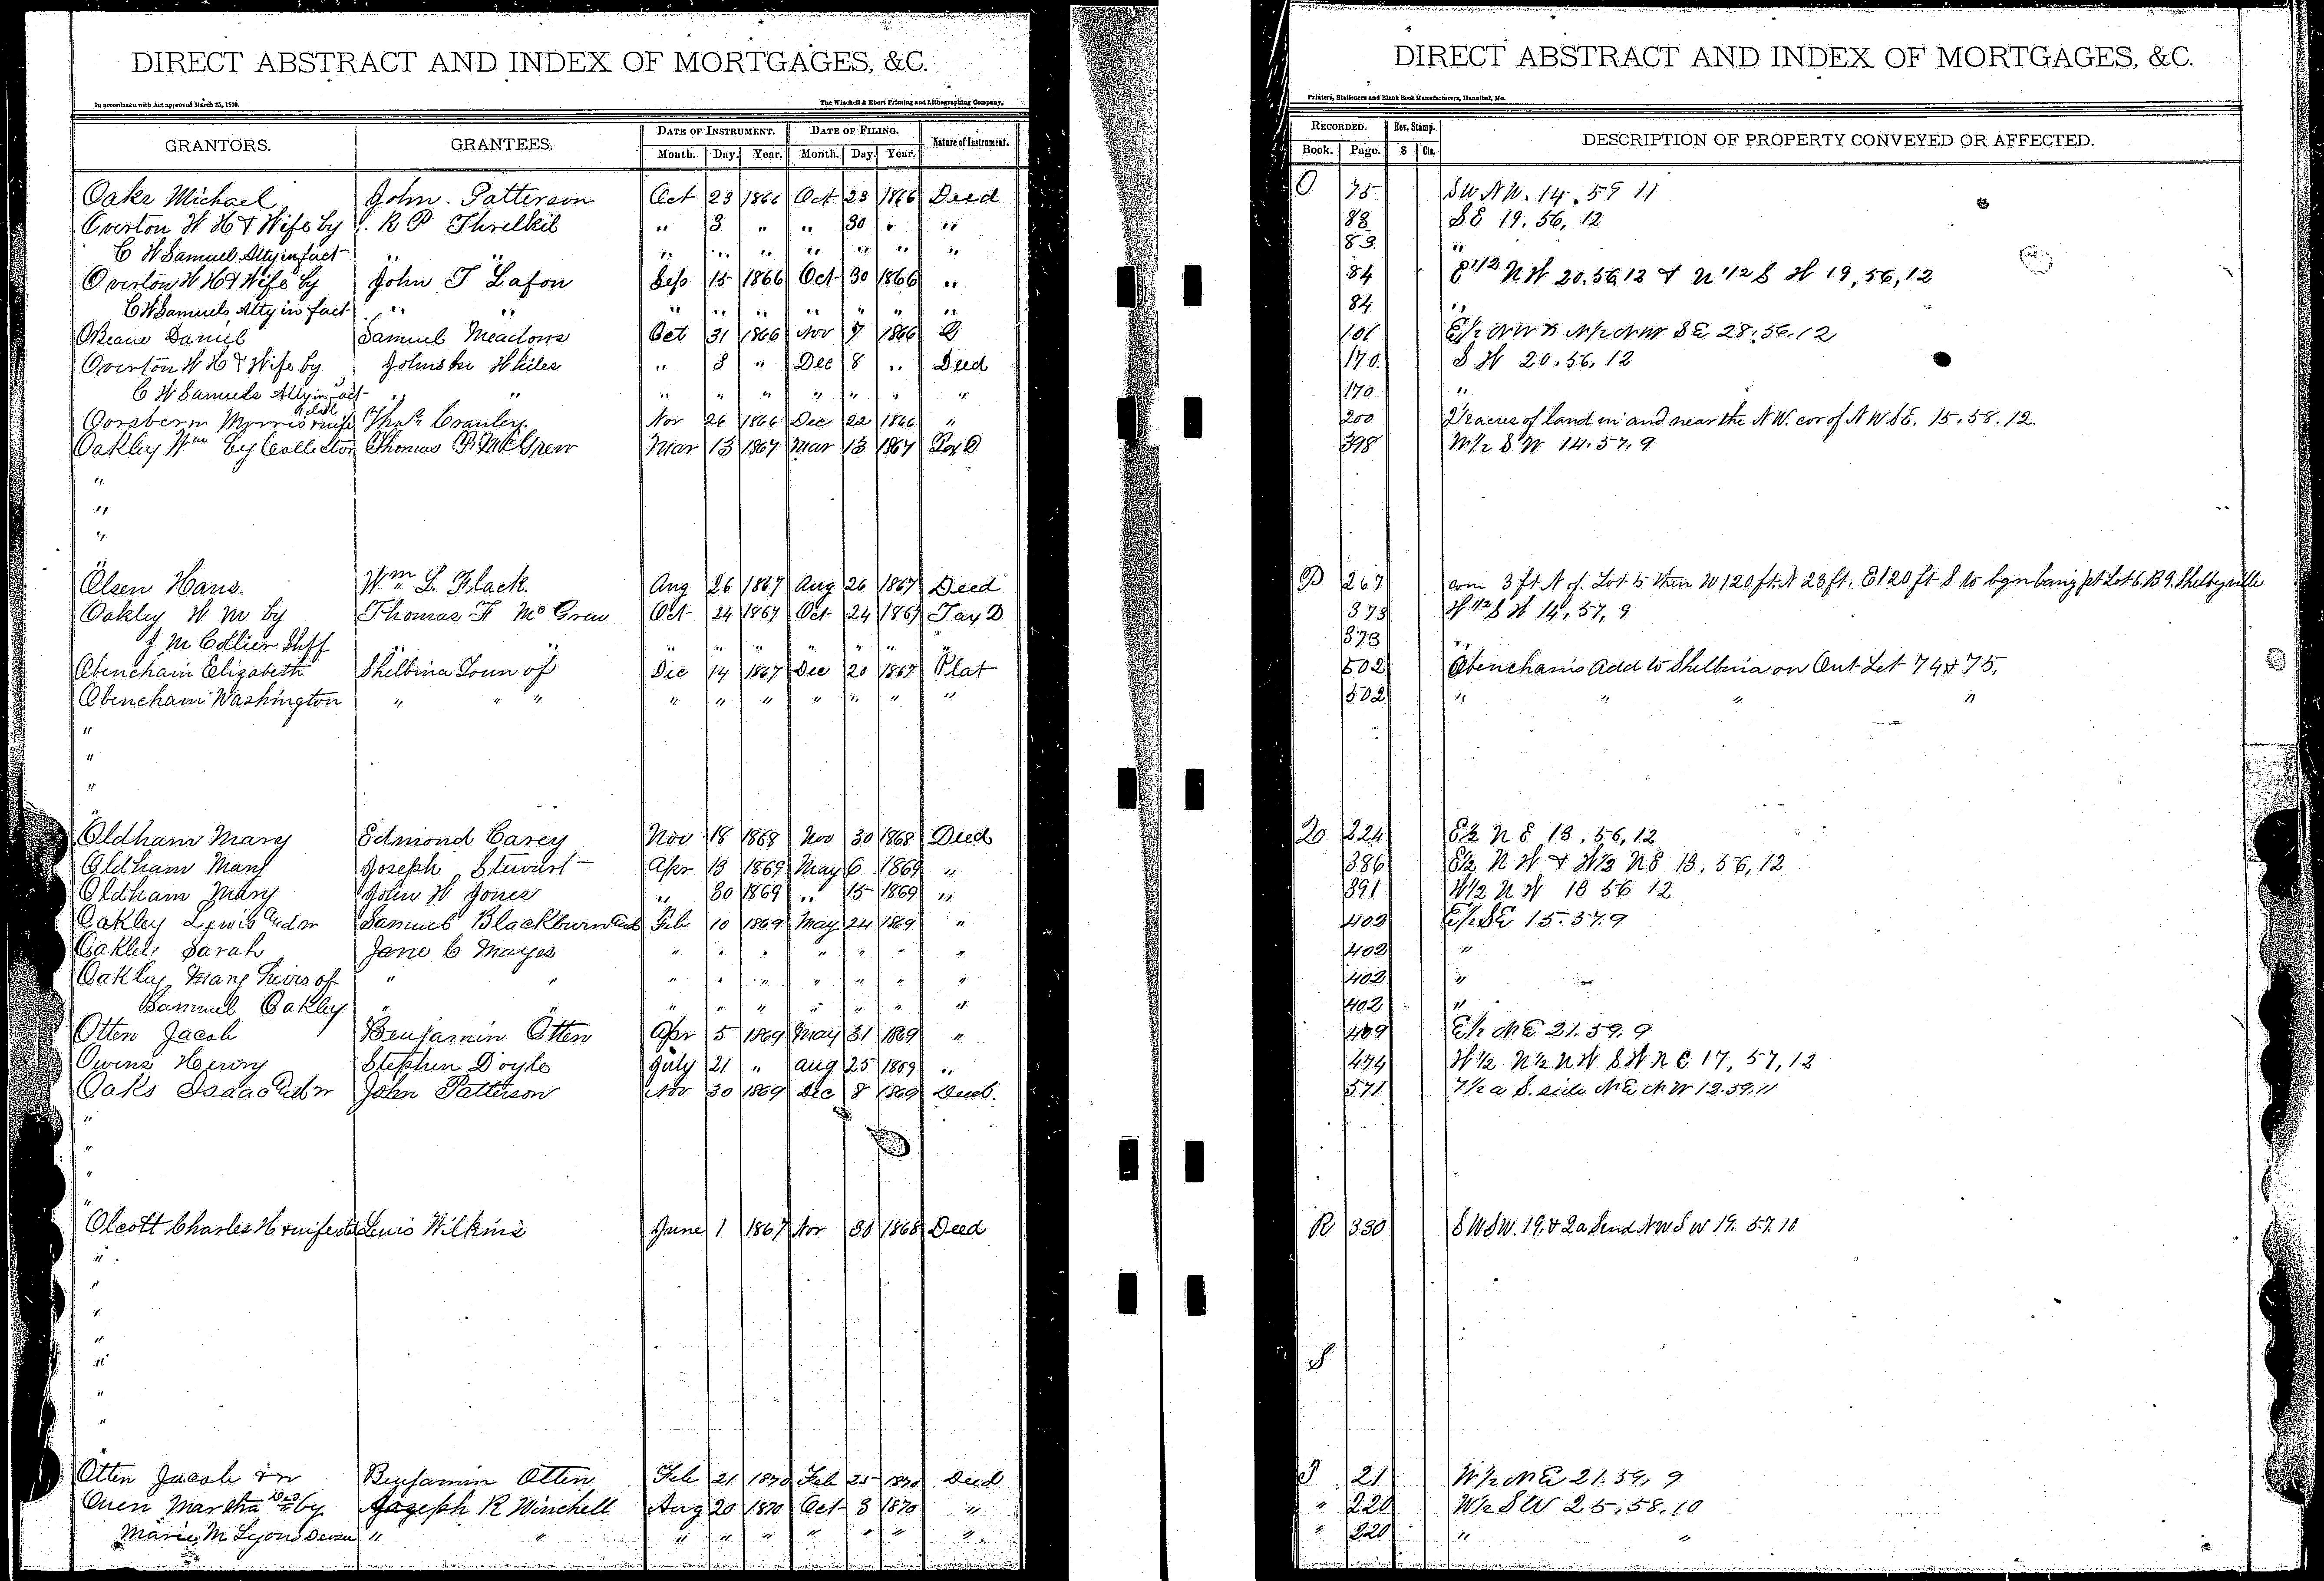 DIRECT ABSTRACT AND INDEX OF MORTGAGES, &C.
In accordance with Act approved March 25, 1870. The Winchell & Ebert Printing and Lithographing Company,
GRANTORS. GRANTEES. DATE OF INSTRUMENT. DATE OF FILING. Nature of Instrument.
Month. Day. Year. Month. Day. Year.
Oaks Michael John Patterson Oct 23 1866 Oct 23 1866 Deed
Overton W H & Wife by R P Threlkil " 3 " " 30 " "
C W Samuel Atty in fact " " " " " " " " "
Overton W H & Wife by John T Lafon Sep 15 1866 Oct 30 1866 "
C W Samuels Atty in fact " " " " " " " " "
OBeane Daniel Samuel Meadows Oct 31 1866 Nov 7 1866 D
Overton W H & Wife by Johnston Whiles " 3 " Dec 8 " Deed
C W Samuels Atty in fact " " " " " " " " "
Morris & wife Thos Cranley Nov 26 1866 Dec 22 1866 "
Oakley Wm by Collector Thomas McGrew Mar 13 1867 Mar 13 1867 Tax D
"
"
"
"
Olsen Hans. Wm L. Flack. Aug 26 1867 Aug 26 1867 Deed
Oakley W M by Thomas F McGrew Oct 24 1867 Oct 24 1867 Tax D
J M Collier Shff " " " " " " " " "
Obenchain Elizabeth Shelbina Town of Dec 14 1867 Dec 20 1867 Plat
Obenchain Washington " " " " " " " " " "
"
"
"
"
Oldham Mary Edmond Carey Nov 18 1868 Nov 30 1868 Deed
Oldham Mary Joseph Stewart Apr 13 1869 May 6 1869 "
Oldham Mary John W Jones " 30 1869 " 15 1869 "
Oakley Lewis Adm Samuel Blackburn Feb 10 1869 May 24 1869 "
Oakley Sarah Jane C Mayes " " " " " " "
Oakley Mary heirs of " " " " " " " " "
Samuel Oakley " " " " " " " " "
Otten Jacob Benjamin Otten Apr 5 1869 May 31 1869 "
Owens Henry Stephen Doyle July 21 " Aug 25 1869 "
Oaks Isaac Adm John Patterson Nov 30 1869 Dec 8 1869 Deed.
"
"
"
"
Olcott Charles H & wife Lewis Wilkins June 1 1867 Nov 30 1868 Deed
"
"
"
"
"
"
"
Otten Jacob Benjamin Otten Feb 21 1870 Feb 25 1870 Deed
Owen Martha by Joseph R Winchell Aug 20 1870 Oct 3 1870 "
Marie M Lyons " " " " " " " " "
DIRECT ABSTRACT AND INDEX OF MORTGAGES, &C.
Printers, Stationers and Blank Book Manufacturers, Hannibal, Mo.
RECORDED. Rev. Stamp. DESCRIPTION OF PROPERTY CONVEYED OR AFFECTED.
Book. Page. $ Cts.
O 75 SW NW. 14. 59 11
83 SE 19. 56, 12
83 "
84 E 1/2 NW 20.56,12 & N 1/2 S W 19, 56, 12
84 "
101 E 1/2 NW & N 1/2 NW SE 28.56.12
170. S W 20.56,12
170 "
200 acres of land in and near the N W. cor of N W S E. 15.58.12.
398 W 1/2 S W 14.57.9
P 267 com 3 ft N of Lot 5 then W 120 ft. N 23 ft. E 120 ft S to bgn being pt Lot 6. B 9. Shelbyville
373 W 1/2 S W 14, 57, 9
373 "
502 Obenchain's Add to Shelbina on Out Lot 74 & 75,
502 " " " "
224 E 1/2 N E 13. 56, 12
386 E 1/2 N W & W 1/2 N E 13, 56, 12
391 W 1/2 N W 13 56 12
402 E 1/2 SE 15.57.9
402 "
402 "
402 "
409 E 1/2 NE 21.59.9
474 W 1/2 N 1/2 N W S W N E 17, 57, 12
571 7 1/2 a S. side NE NW 12.59.11
R 330 S W S W. 19. & 2 a S end N W S W 19. 57.10
S
21 W 1/2 NE 21.59, 9
" 220 W 1/2 SW 25.58.10
" 220 " "